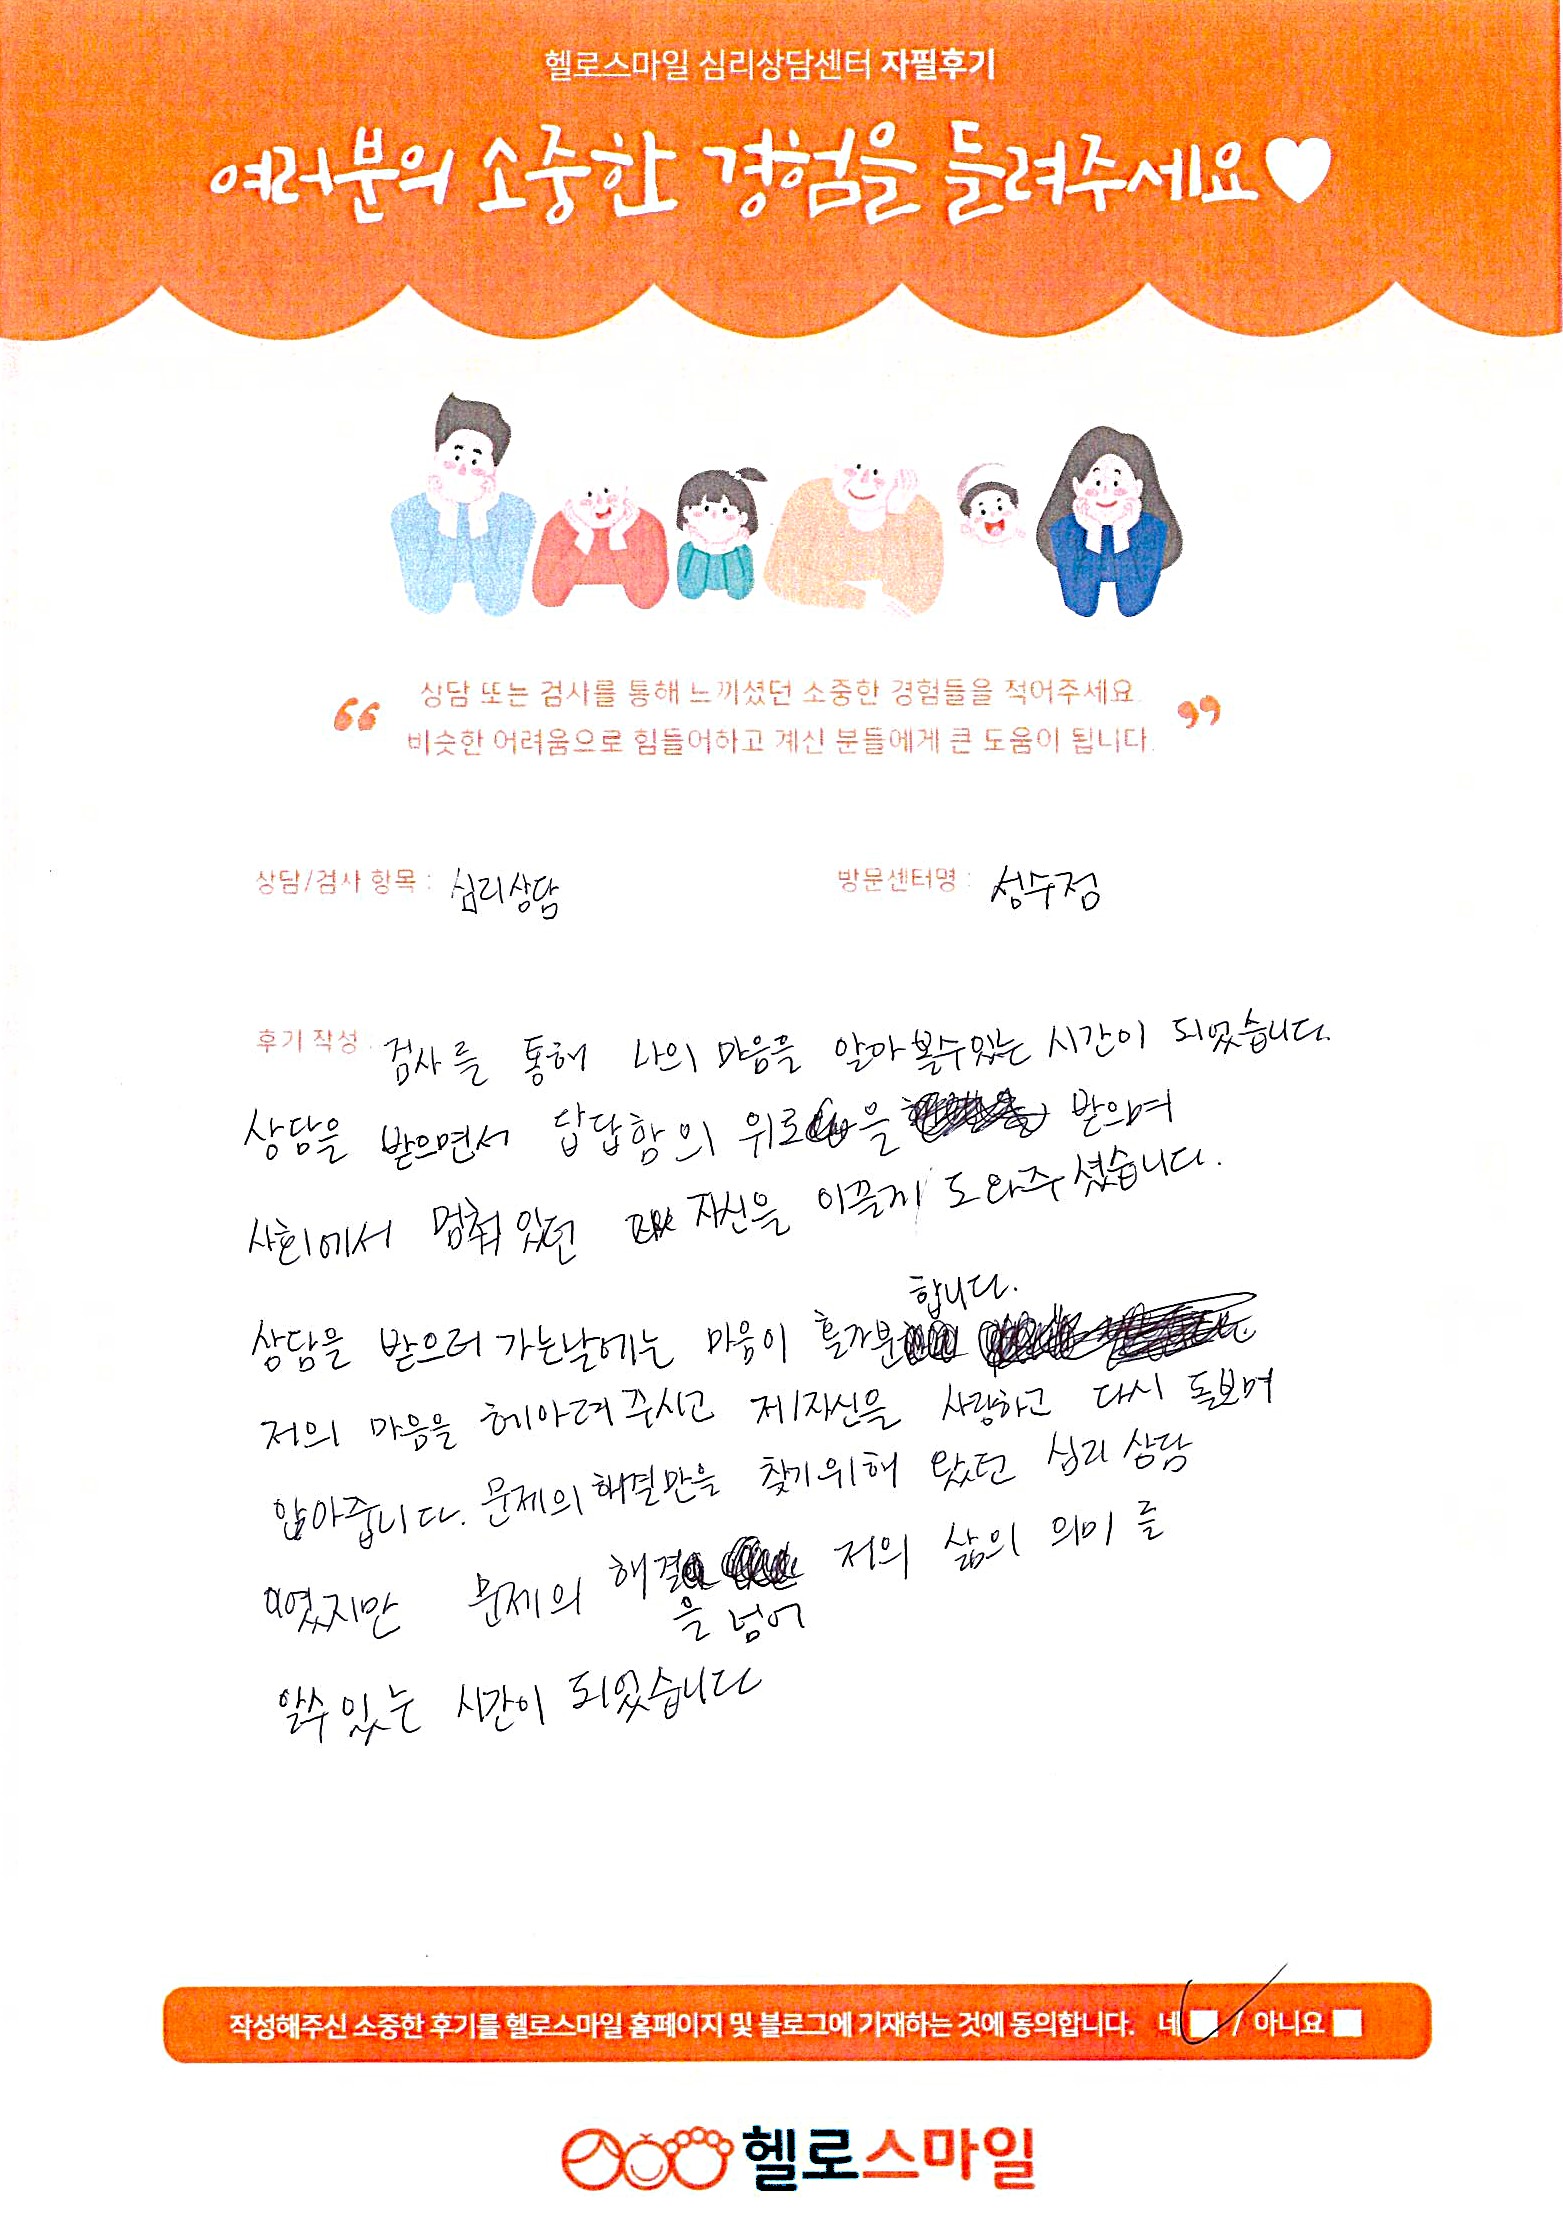 헬로스마일 심리상담센터 자필후기
여러분의 소중한 경험을 들려주세요
“ 상담 또는 검사를 통해 느끼셨던 소중한 경험들을 적어주세요.
비슷한 어려움으로 힘들어하고 계신 분들에게 큰 도움이 됩니다. ”
상담/검사 항목 : 심리상담 방문센터명 : 성수점
후기 작성 : 검사를 통해 나의 마음을 알아볼수있는 시간이 되었습니다.
상담을 받으면서 답답함의 위로을 받으며
사회에서 멈춰있던 자신을 이끌게 도와주셨습니다.
상담을 받으러 가는날에는 마음이 홀가분합니다.
저의 마음을 헤아려주시고 제자신을 사랑하고 다시 돌보며
안아줍니다. 문제의해결만을 찾기위해 왔던 심리상담
이였지만 문제의 해결을 넘어 저의 삶의 의미를
알수있는 시간이 되었습니다
작성해주신 소중한 후기를 헬로스마일 홈페이지 및 블로그에 기재하는 것에 동의합니다. 네 / 아니요
헬로스마일